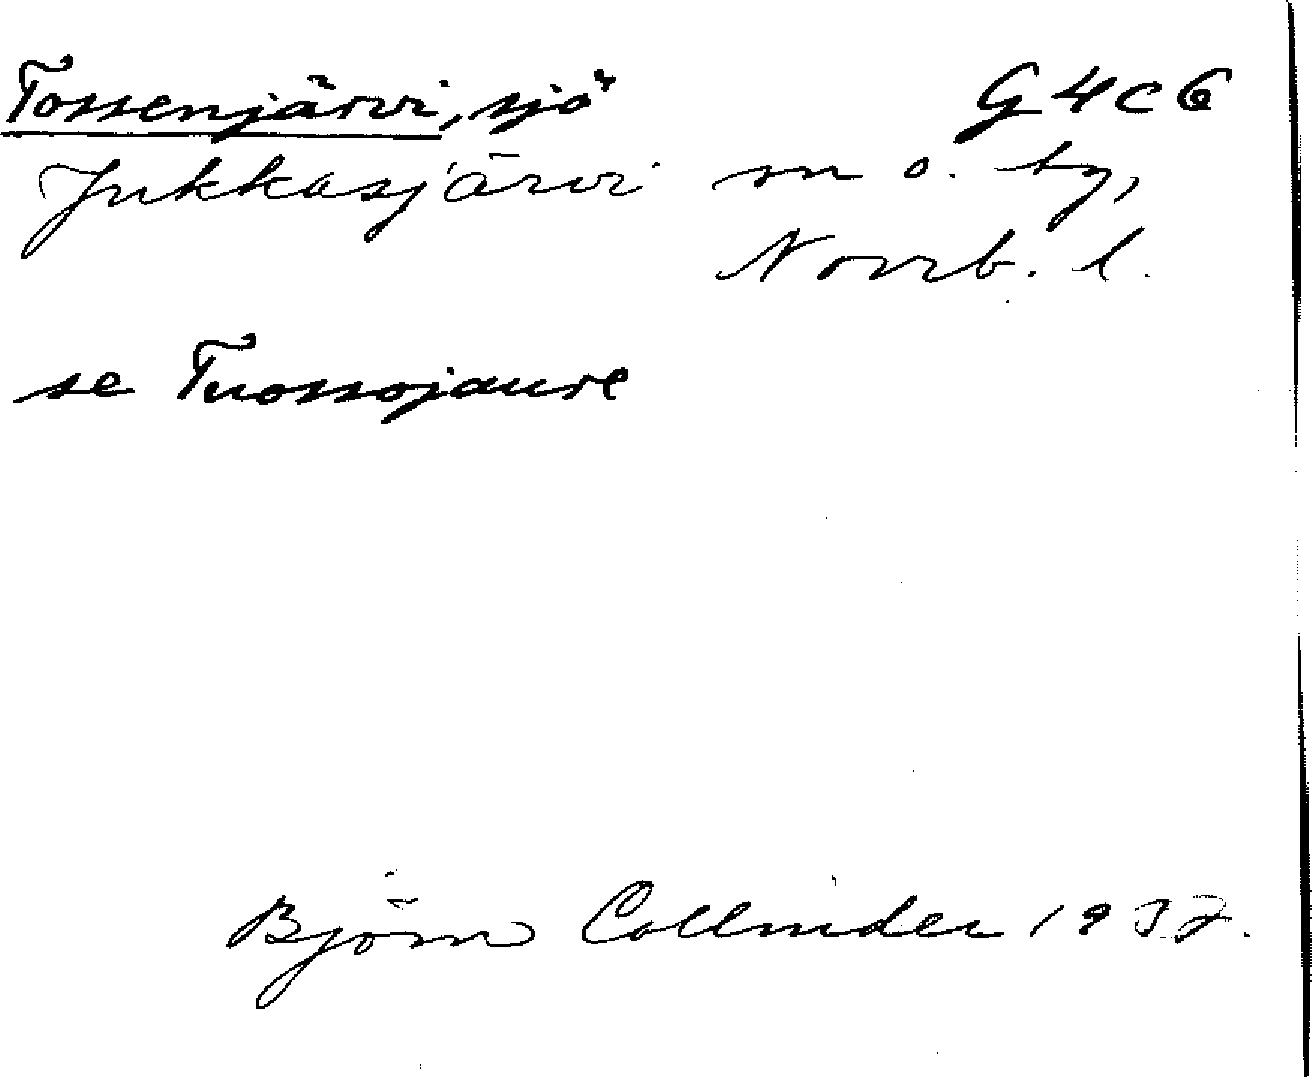 Tossenjärvi, sjö G4c6
Jukkasjärvi sn o. by,
Norrb. l.
se Tuossojaure
Björn Collinder 1937.